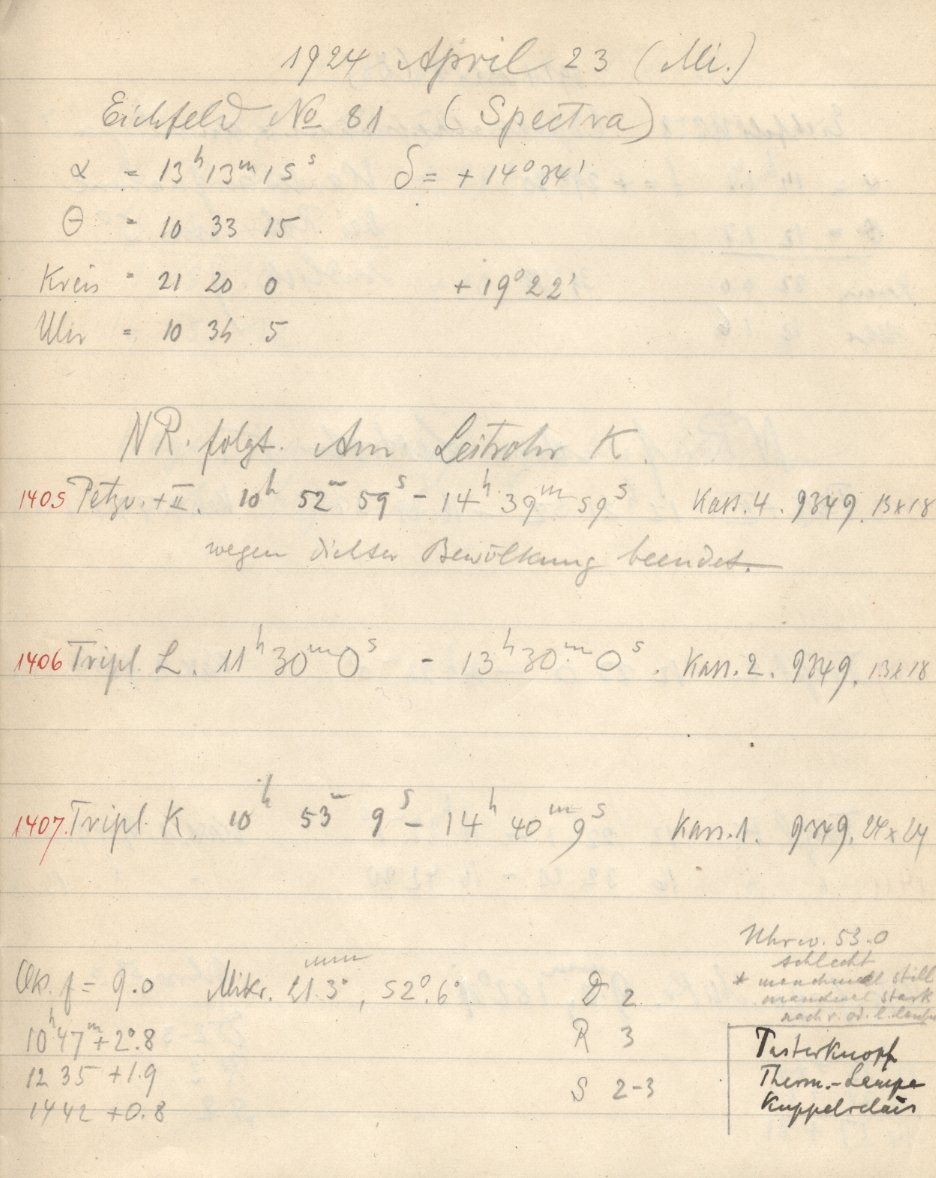 1924 April 23 (Mi.)
Eichfeld No 81 (Spectra)
α = 13h 13m 15s δ = +14° 24'
Θ = 10 33 15
Kreis = 21 20 0 +19° 22'
Uhr = 10 34 5
NR. folgt. Am Leitrohr K.
1405 Petzv. + II. 10h 52m 59s – 14h 39m 59s Kass. 4. 9349. 13x18
wegen dichter Bewölkung beendet.
1406 Tripl. L. 11h 30m 0s – 13h 30m 0s. Kass. 2. 9349. 13x18
1407. Tripl. K 10h 53m 9s – 14h 40m 9s Kass. 1. 9349. 24x24
Uhrw. 53.0
schlecht
* manchmal still
manchmal stark
nach r. od. l.
Ok. f = 9.0 Mikr. 21.3 mm, 52°.6 D 2
10h 47m +2°.8 R 3
12 35 +1.9 S 2-3
14 42 +0.8
Tasterknopf
Therm.-Lampe
Kuppelrelais